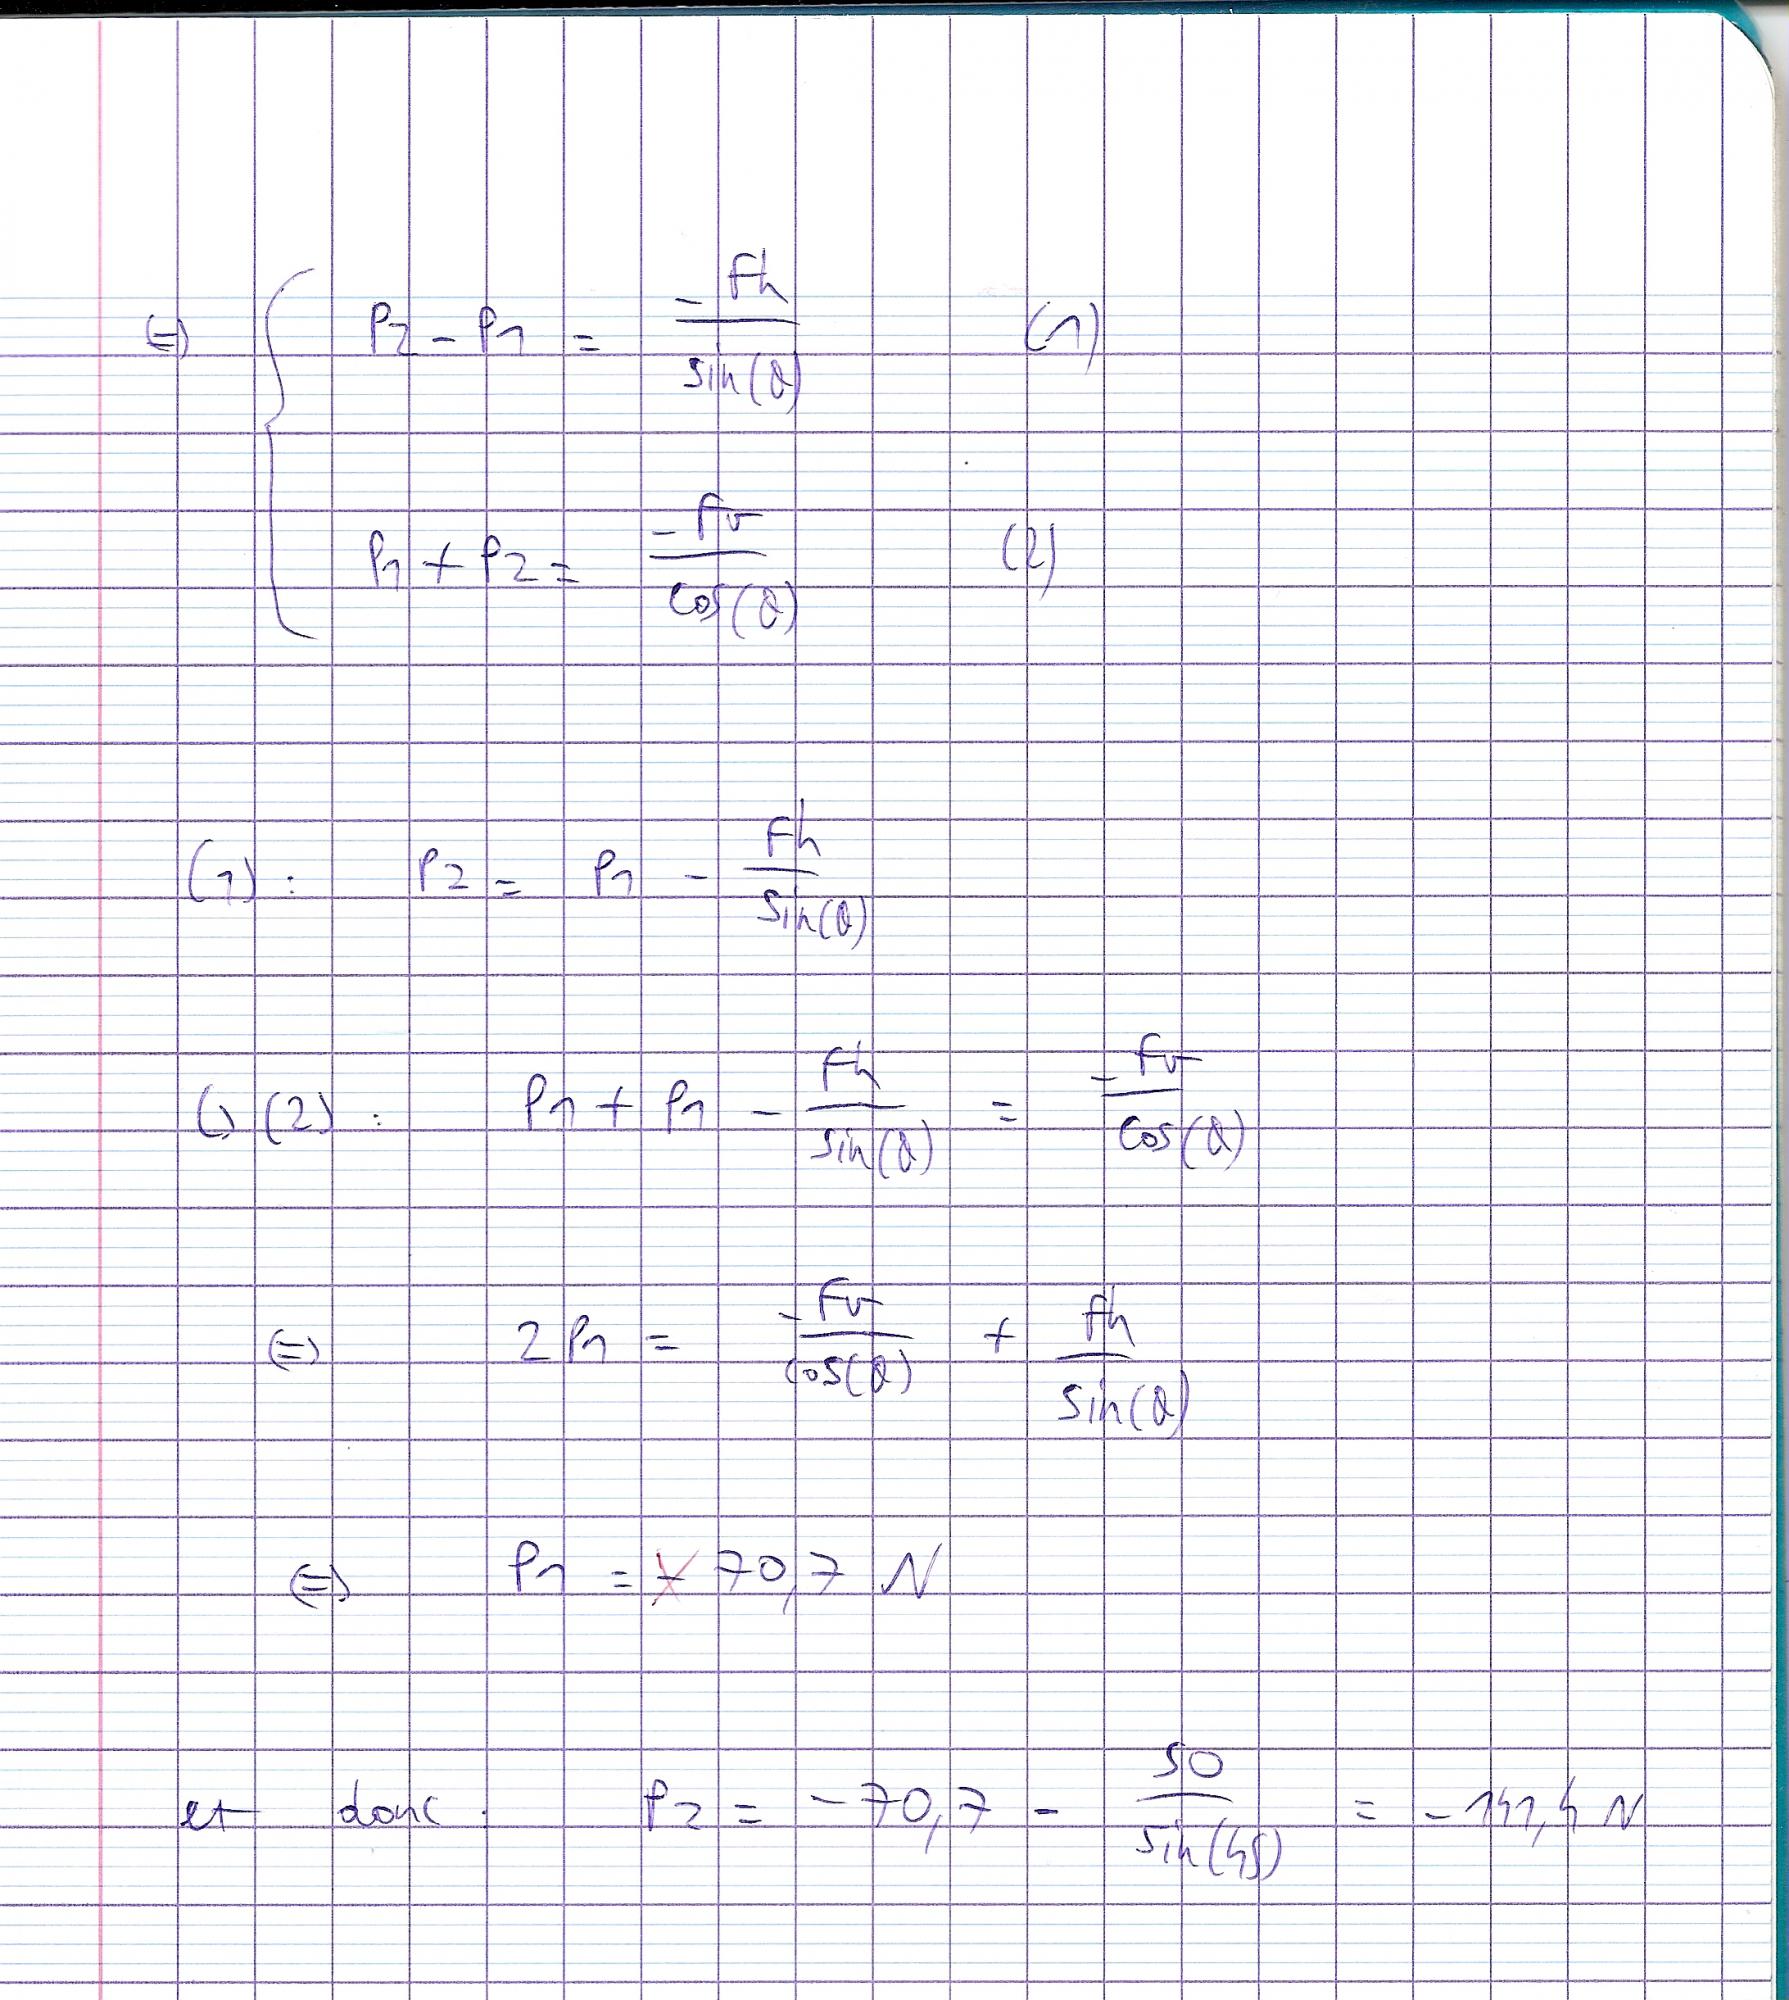 (=) { P2 - P1 = -Fh / sin(θ) (1)
P1 + P2 = -Fv / cos(θ) (2)
(1) : P2 = P1 - Fh / sin(θ)
(2) : P1 + P1 - Fh / sin(θ) = -Fv / cos(θ)
(=) 2P1 = -Fv / cos(θ) + Fh / sin(θ)
(=) P1 = - 70,7 N
et donc : P2 = -70,7 - 50 / sin(45) = -141,4 N